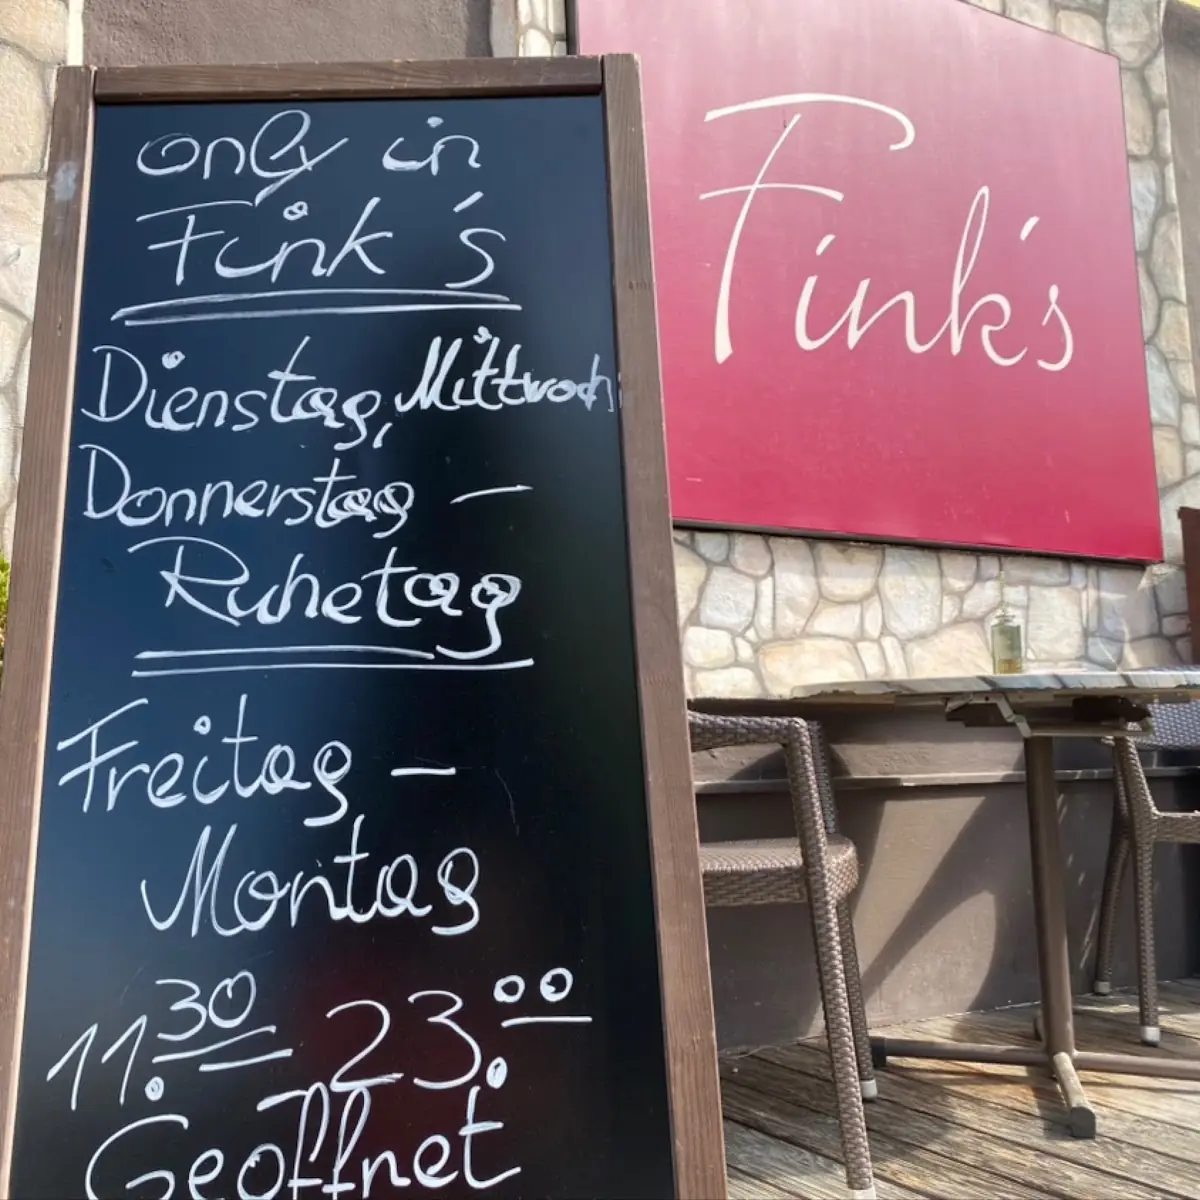 only in
Fink's
Dienstag, Mittwoch
Donnerstag –
Ruhetag
Freitag –
Montag
11.30 – 23.00
Geöffnet
Fink's